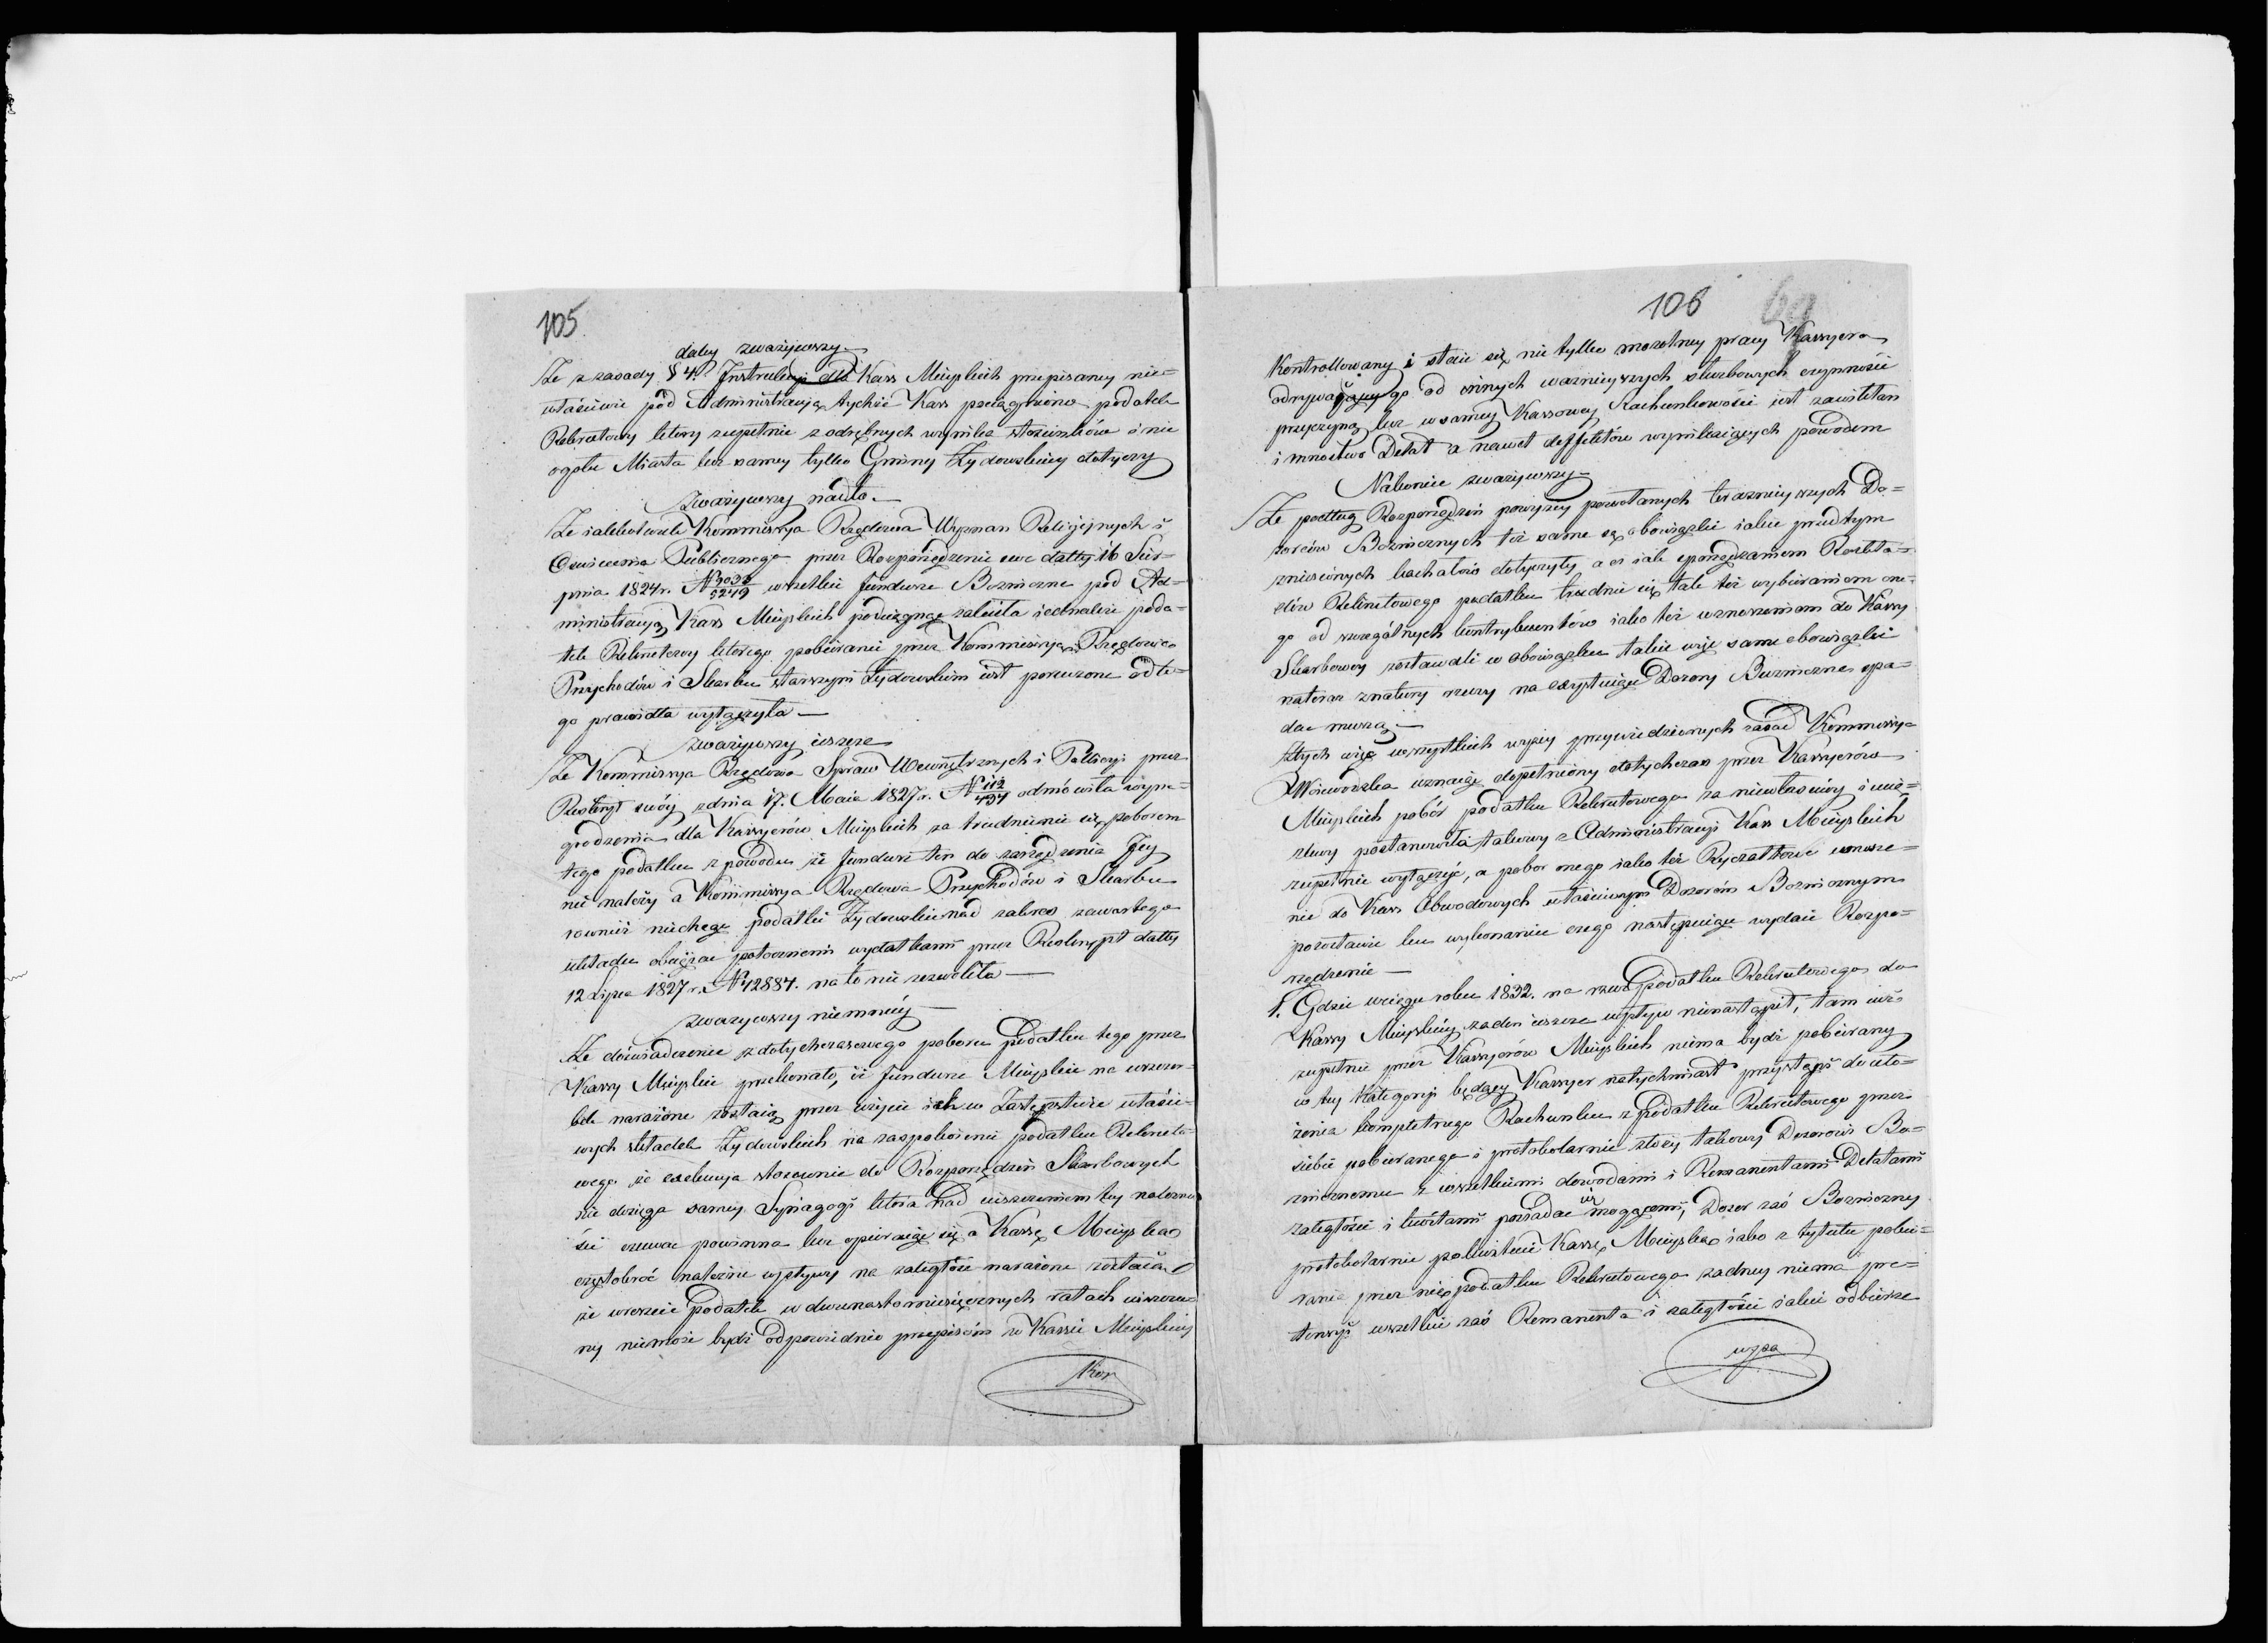 105
daley zwazywszy.
Ze z zasady § 4. Instrukcyi dla Kass Mieyskich przepisaney nie-
właściwie pod Administracyą tychże Kass pociągniono podatek
Rekrutowy ktory zupełnie z odrębnych wynika stosunków i nie
ogółu Miasta lecz samey tylko Gminy Żydowskiey dotyczy
Zważywszy nadto.
Ze iakkolwiek Kommissya Rządowa Wyznan Religijnych i
Oswiecenia Publicznego przez Rozporządzenie swe datty 16 Sier-
pnia 1824 r. N 3032/5249 wszelkie fundusze Boznicze pod Ad-
ministracyą Kass Mieyskich pociągnąć zaleciła iednakże poda-
tek Rekrutowy ktorego pobieranie przez Kommissyą Rządową
Przychodów i Skarbu starszym Żydowskim iest poruczone od te-
go prawidła wyłączyła
Zważywszy ieszcze
Ze Kommissya Rządowa Spraw Wewnętrznych i Policyi przez
Reskrypt swóy z dnia 17. Maia 1827 r. N 112/484 odmówiła wyna-
grodzenia dla Kassyerów Mieyskich za trudnienie się poborem
tego podatku z powodu że fundusz ten do zarządzenia Jey
nie należy a Kommissya Rządowa Przychodów i Skarbu
rownież niechcąc podatki Żydowskie nad zakres zawartego
układu obciążać potocznemi wydatkami przez Reskrypt datty
12 Lipca 1827 r. N 42884. na to nie zezwoliła
Zwazywszy niemniéy
Ze doświadczenie z dotychczasowego poboru podatku tego przez
Kassy Mieyskie przekonało, iż fundusze Mieyskie na uszczer-
bek narażone zostaią przez użycie ich w Zastępstwie właści-
wych składek Żydowskich na zaspokoienie podatku Rekruto-
wego że exekucya stosownie do Rozporządzeń Skarbowych
nie dosięga samey Synagogi która nad uiszczeniem tey należno-
ści czuwać powinna lecz opieraiąc się o Kassę Mieyską
częstokroć należne wpływy na zaległość narażone zostaią
że wreszcie podatek w dwunastomiesięcznych ratach uiszczo-
ny niemoże bydź odpowiednio przepisóm w Kassie Mieyskiey
Kon
106
69
Kontrollowany i staie się nie tylko mozolney pracy Kassyera
odrywaiącey go od innych ważnieyszych służbowych czynności
przyczyną lecz w samey Kassowey Rachunkowości iest zawikłań
i mnóstwa Defat a nawet deffektów wynikaiących powodem
Nakoniec zważywszy
Ze podług Rozporządzeń powyżey powołanych teraznieyszych Do-
zorców Boznicznych też same są obowiązki iakie przedtym
zniesionych kachałów dotyczyły, a ci iak sporządzaniem Rozkła-
dów Rekrutowego podatku trudnić się tak też wybieraniem one-
go od szczególnych kontrybuentów iako też wnoszeniem do Kassy
Skarbowey zostawali w obowiązku takie więc same obowiązki
na teraz z natury rzeczy na exystuiące Dozory Boznicze spa-
dać muszą
Z tych więc wszystkich wyżey przywiedzionych zasad Kommissya
Woiewodzka uznaiąc dopełniony dotychczas przez Kassyerów
Mieyskich pobór podatku Rekrutowego za niewłaściwy i ucią-
żliwy postanowiła takowy z Administracyi Kass Mieyskich
zupełnie wyłączyć, a pobor onego iako też Ryczałtowe wnosze-
nie do Kass Obwodowych właściwym Dozoróm Bozniczym
pozostawić ku wykonaniu czego następuiące wydaie Rozpo-
rządzenie
1. Gdzie wciągu roku 1832. na rzecz podatku Rekrutowego do
Kassy Mieyskiéy żaden ieszcze wpływ nienastąpił, tam iuż
zupełnie przez Kassyerów Mieyskich niema bydź pobierany
w tey Kategoryi będący Kassyer natychmiast przystąpi do uło-
żenia kompletnego Rachunku z podatku Rekrutowego przez
siebie pobieranego i protokolarnie złoży takowy Dozorowi Bo-
zniczemu z wszelkiemi dowodami i Remanentami Defatami
zaległości i kwitami posiadać się mogącemi, Dozor zaś Bozniczny
protokolarnie pokwituie Kassę Mieyską iako z tytułu pobie-
rania przez nię podatku Rekrutowego żadney niema pre-
tensyi wszelkie zaś Remanenta i zaległości iakie odbierze